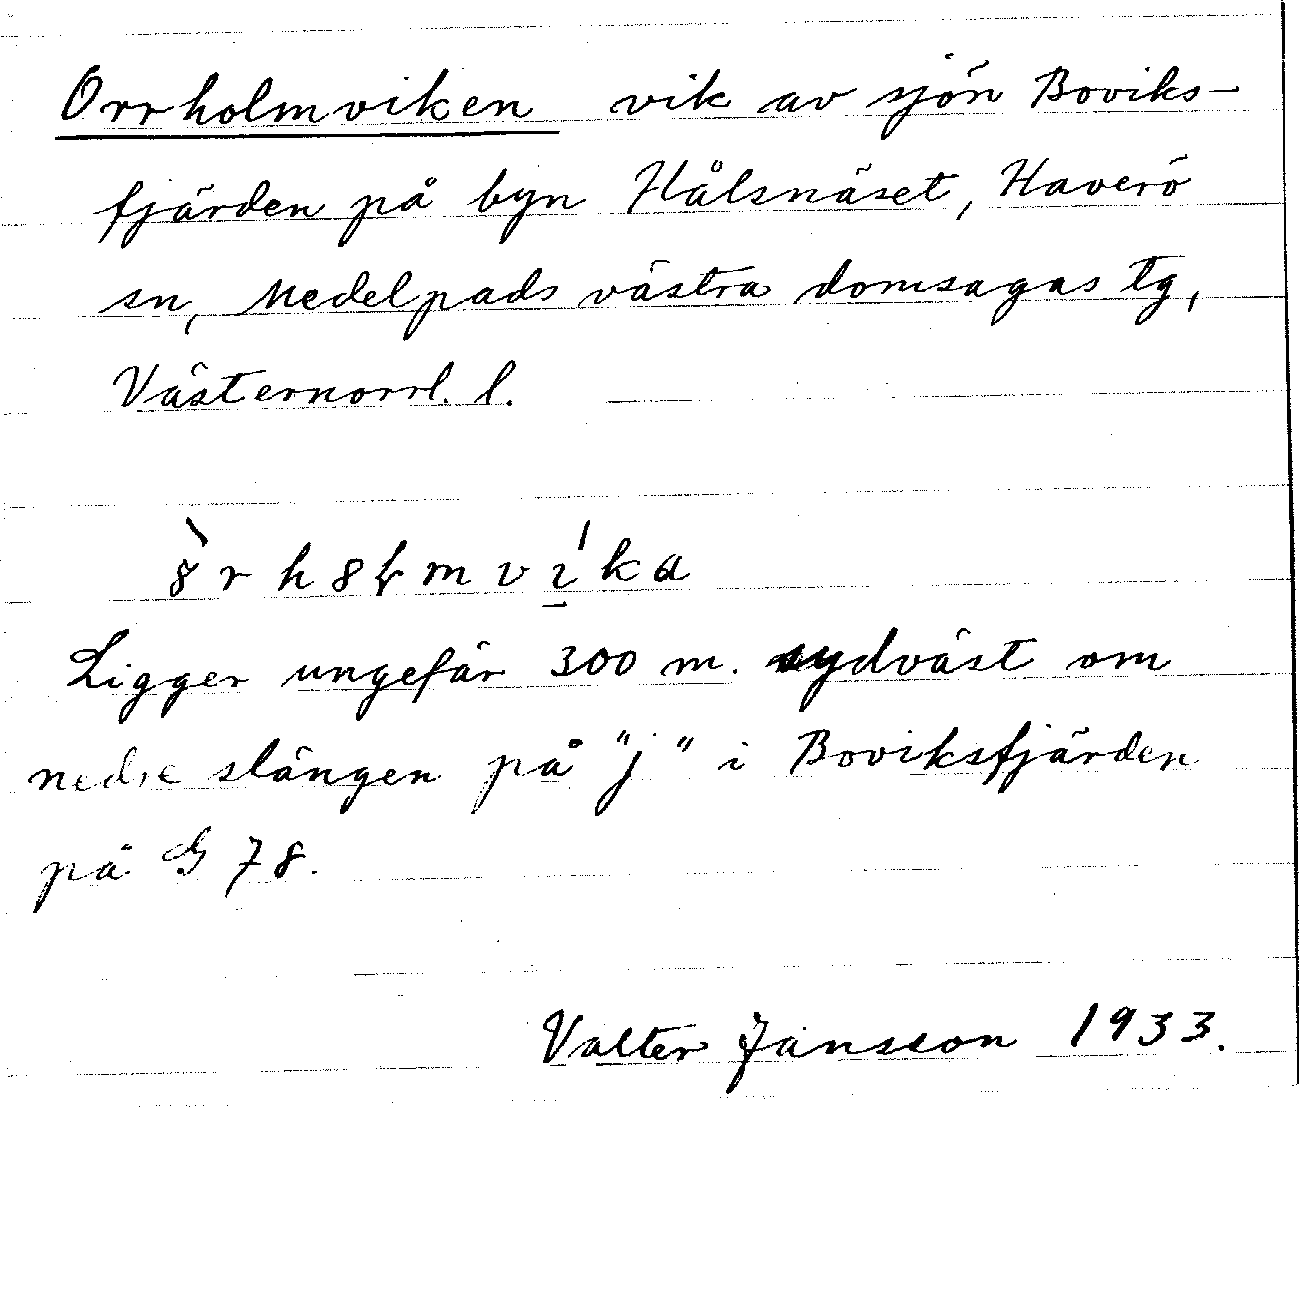 Orrholmviken vik av sjön Boviks-
fjärden på byn Hålsnäset, Haverö
sn, Medelpads västra domsagas tg,
Västernorrl. l.
Ligger ungefär 300 m. sydväst om
nedre slängen på "j" i Boviksfjärden
på G 78.
Valter Jansson 1933.